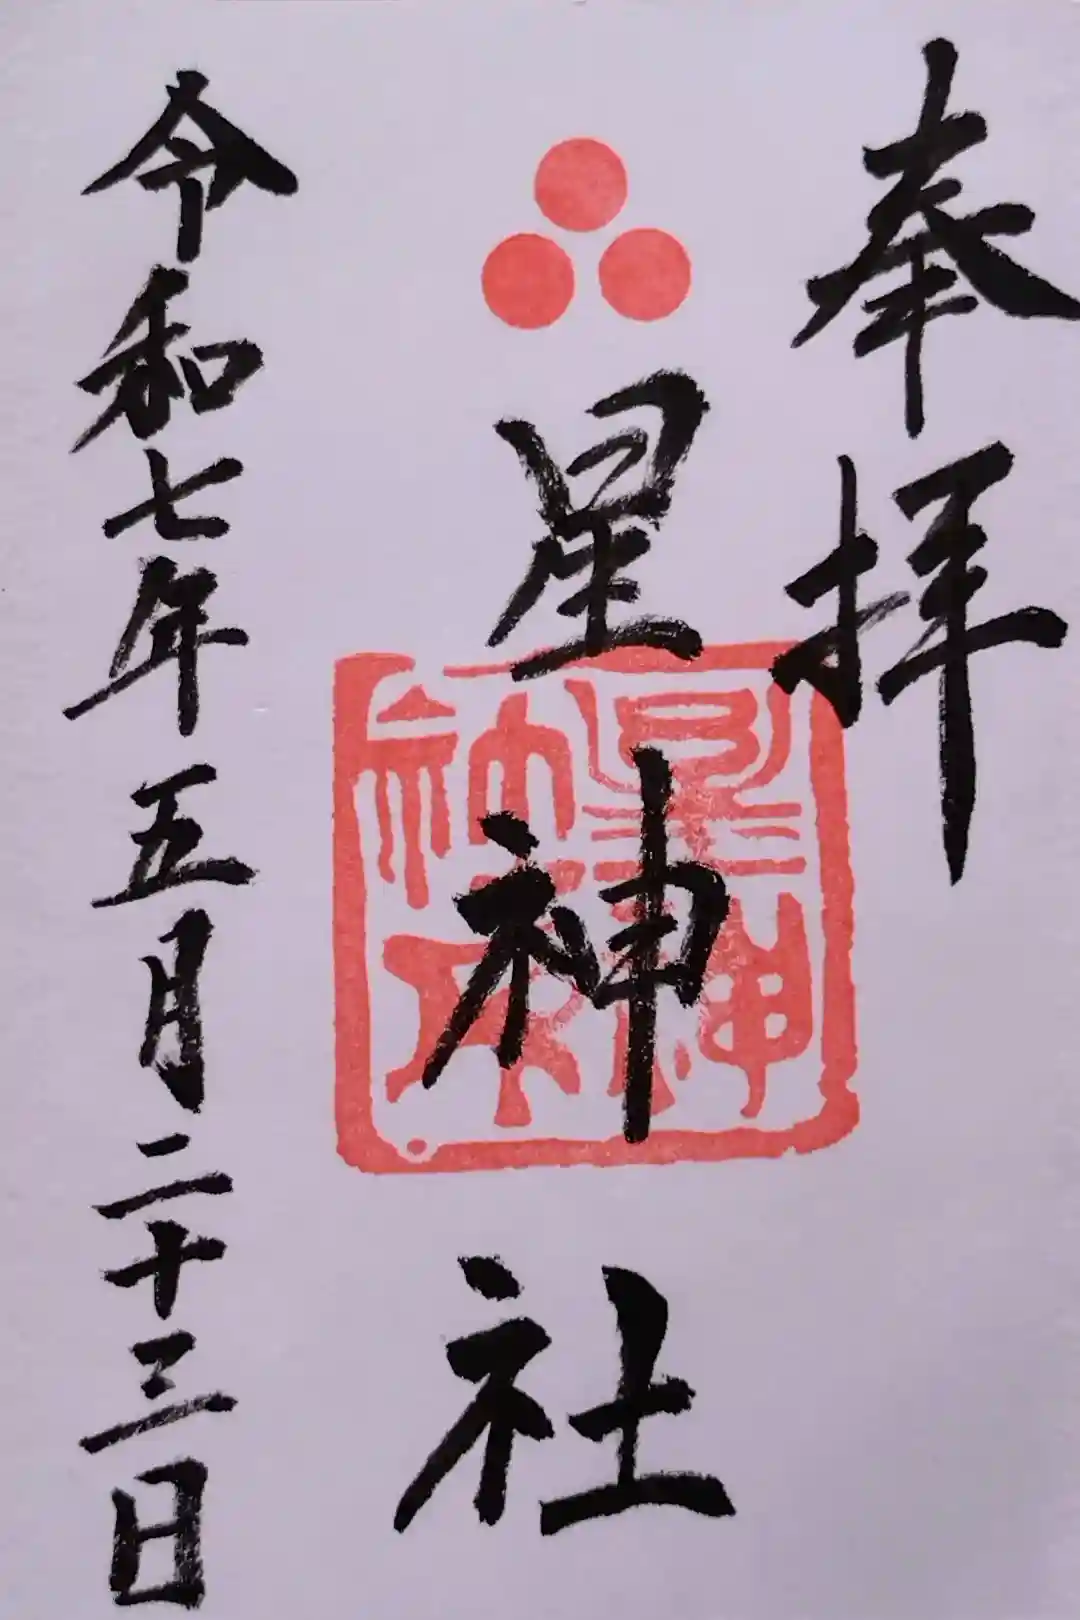 奉拝
星神社
星神社印
令和七年五月二十三日